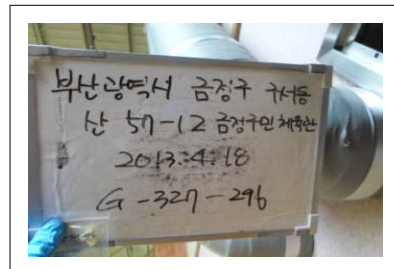 부산광역시 금정구 구서동
산 57-12 금정구민체육관
2013.4.18
G-327-296